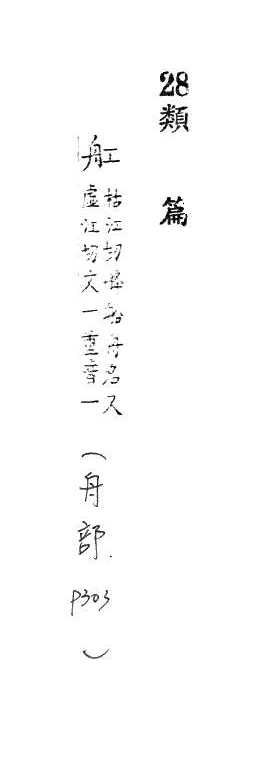 28類篇
舡
枯江切舟名又
虛江切文一重音一
(舟部 P303)